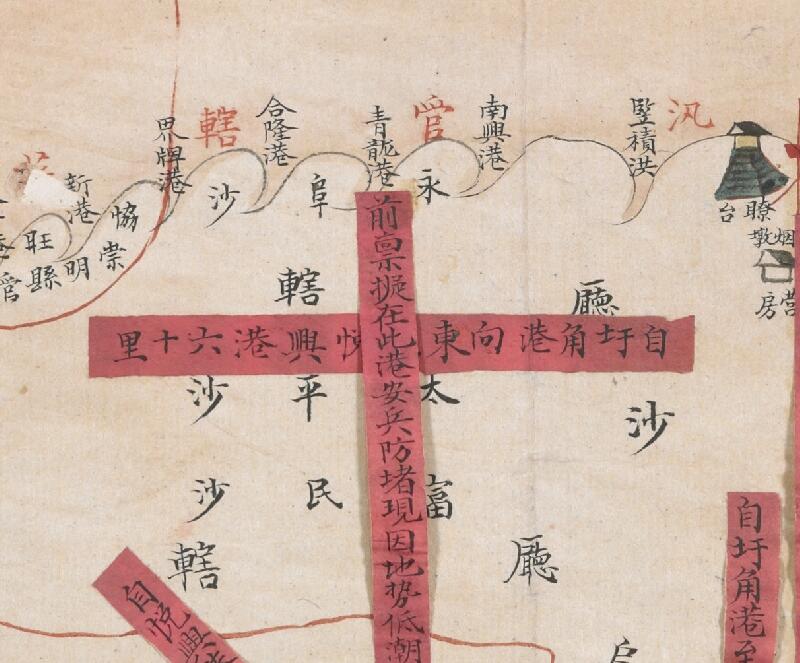 汛
管
轄
竪積洪
南興港
青龍港
合隆港
界牌港
新港
瞭
台
烟
墩
营
房
永
阜
沙
協
崇
明
旺
縣
管
廳
轄
自圩角港向東 悅興港六十里
前禀擬在此港安兵防堵現因地势低潮
沙
太
平
沙
富
民
沙
廳
轄
自圩角港至
自悅興港